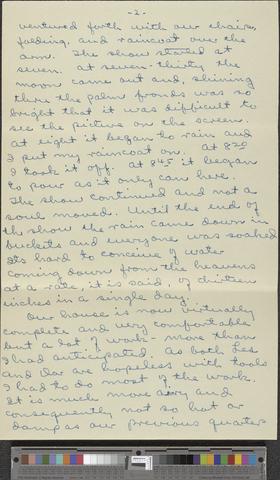 -2-
ventured forth with our chairs,
folding, and raincoat over the
arm. The show started at
seven. At seven-thirty the
moon came out and, shining
thru the palm fronds was so
bright that it was difficult to
see the picture on the screen.
At eight it began to rain and
I put my raincoat on. At 8:20
I took it off. At 8:45 it began
to pour as it only can here.
The show continued and not a
soul moved. Until the end of
the show the rain came down in
buckets and everyone was soaked
Its hard to conceive of water
coming down from the heavens
at a rate, it is said, of thirteen
inches in a single day.
Our house is now virtually
complete and very comfortable
but a lot of work - more than
I had anticipated. As both
and are hopeless with tools
I had to do most of the work.
It is much more airy and
consequently not so hot or
damp as our previous quarter